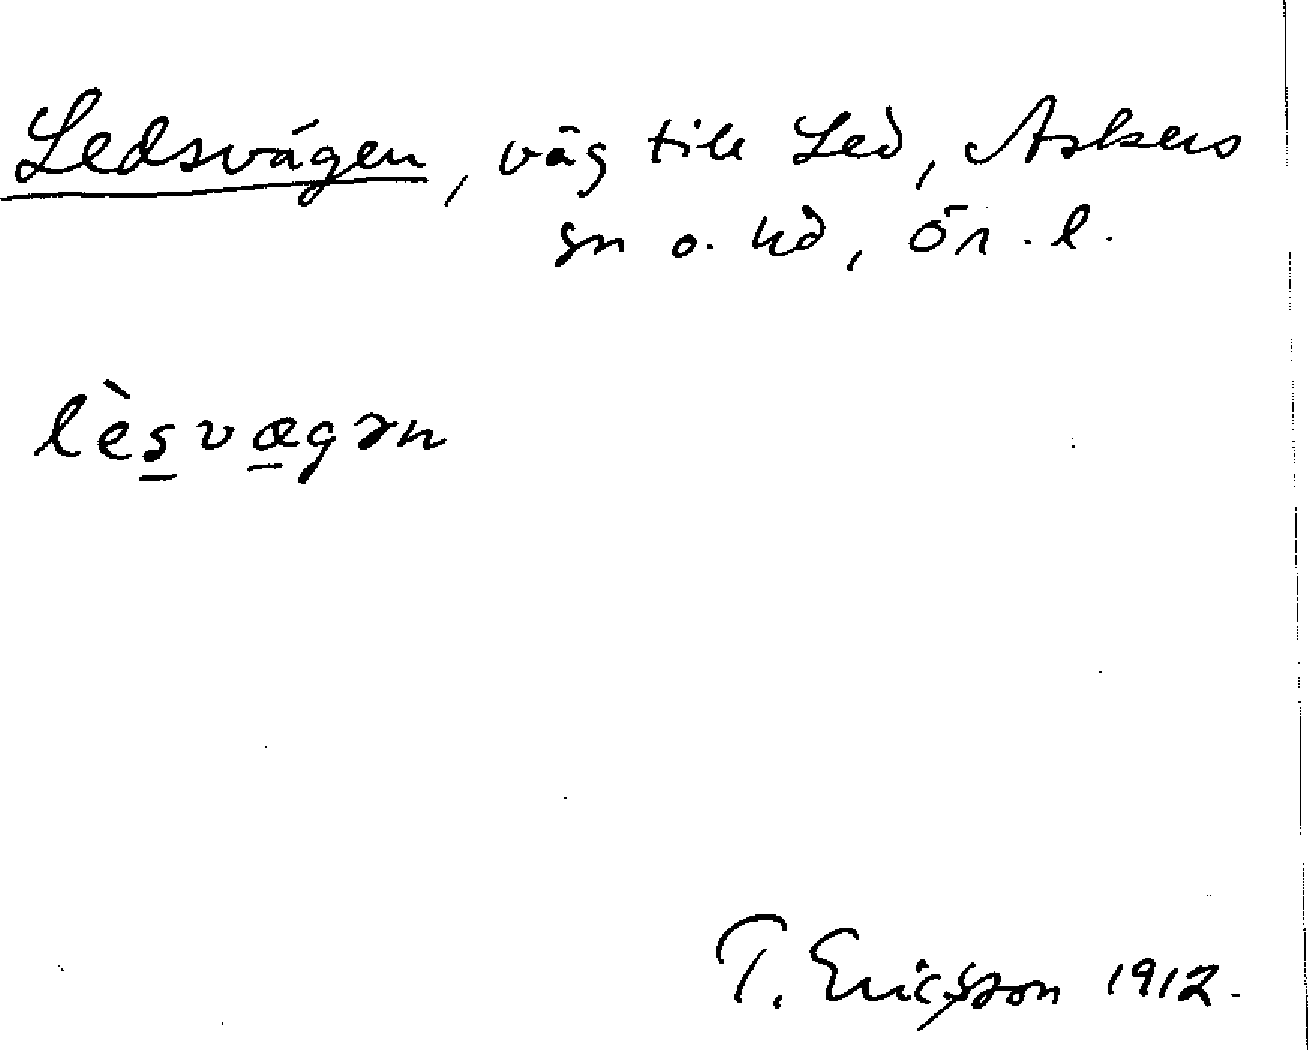 Ledsvägen, väg till Led, Askers
sn o. hd, Ör. l.
lèsvægən
T. Ericsson 1912.